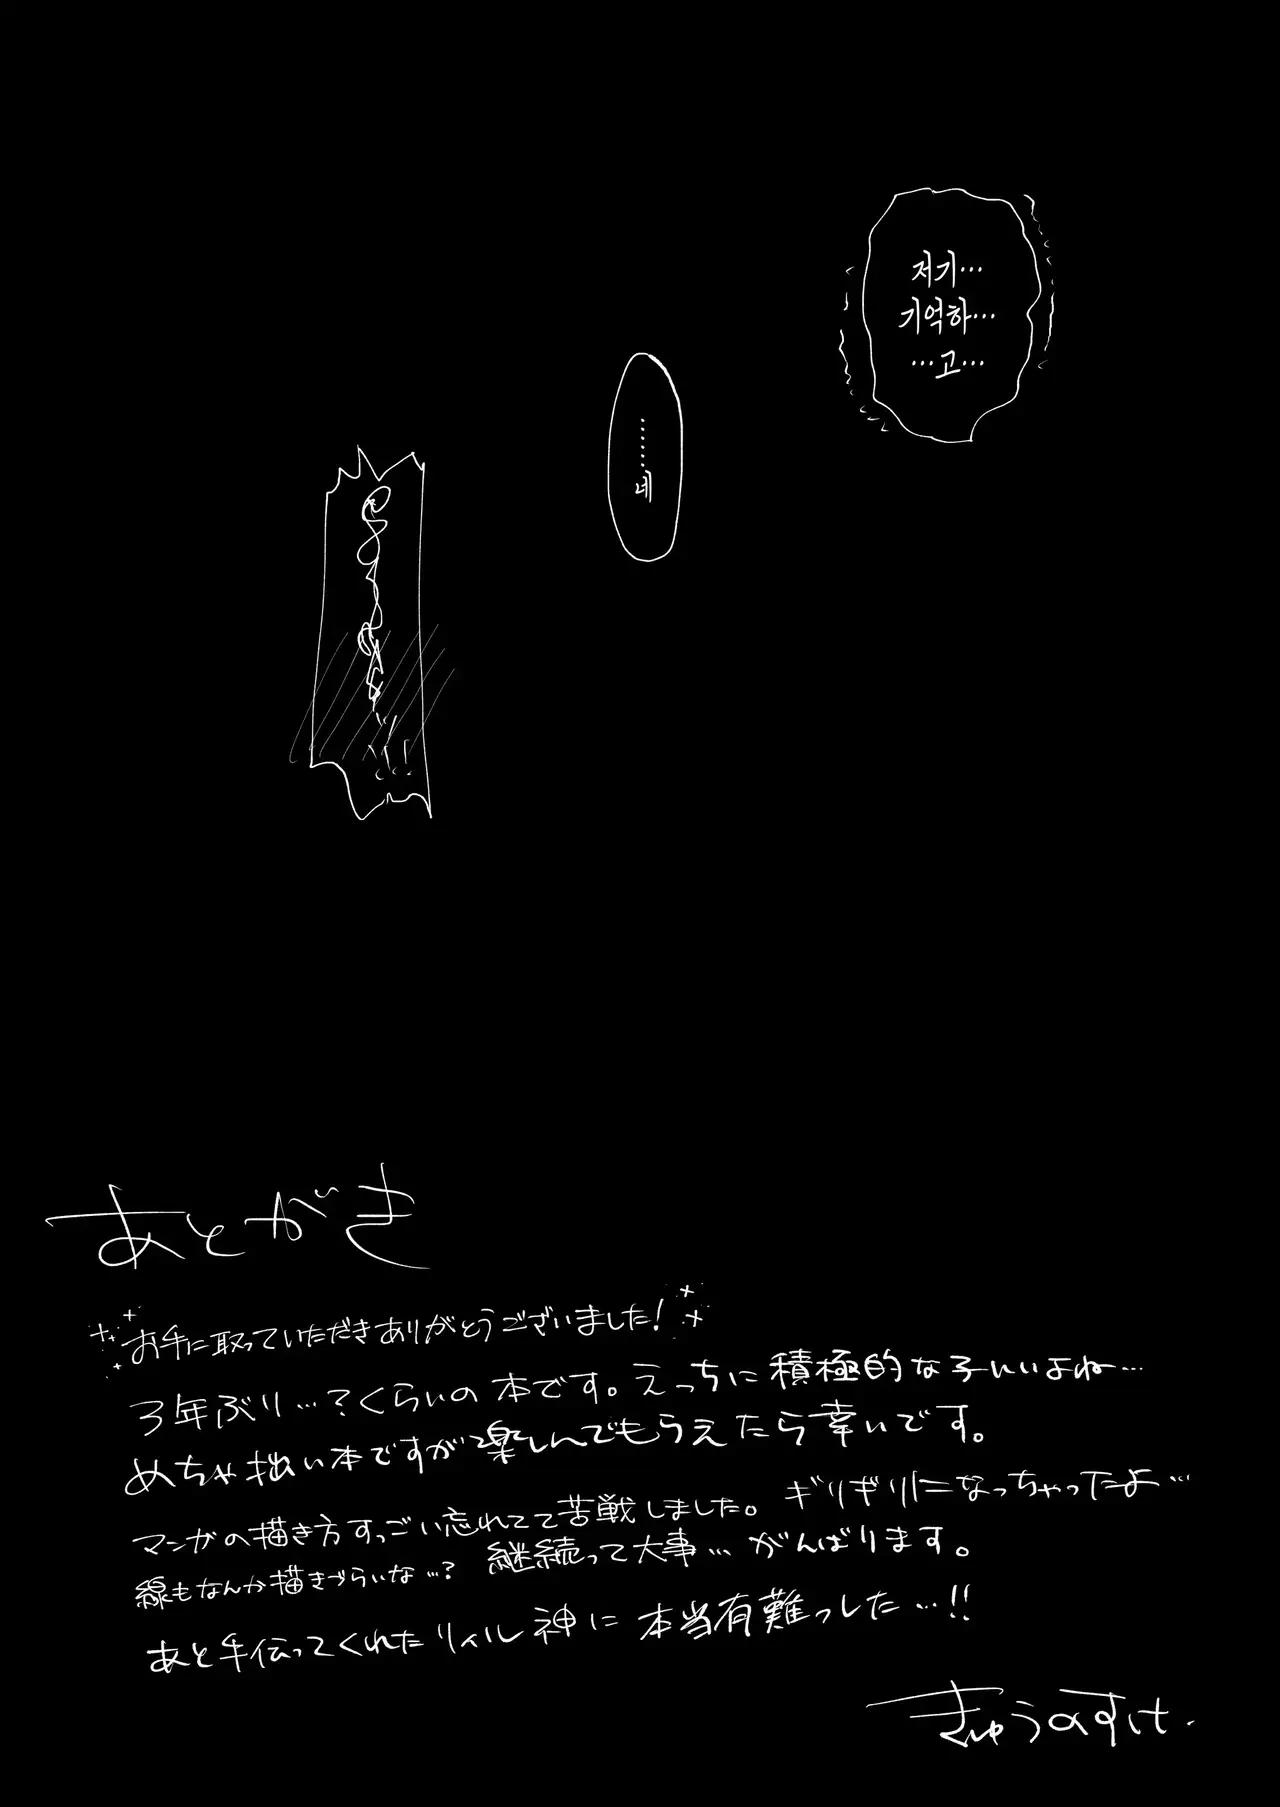 저기…
기억하…
…고…
………네
あとがき
お手に取っていただきありがとうございました!
3年ぶり…?くらいの本です。えっちに積極的な子いいよね…
めちゃ拙い本ですが楽しんでもらえたら幸いです。
マンガの描き方すっごい忘れてて苦戦しました。ギリギリになっちゃったよ…
線もなんか描きづらいな…? 継続って大事… がんばります。
あと手伝ってくれたリィル神に本当有難っした…!!
きゅうのすけ.